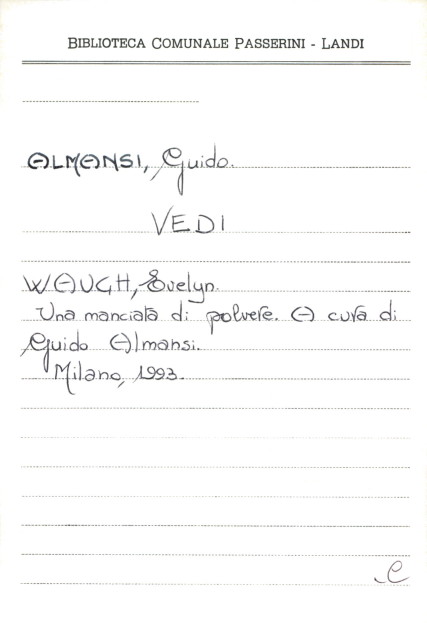 BIBLIOTECA COMUNALE PASSERINI - LANDI
ALMANSI, Guido.
VEDI
WAUGH, Evelyn.
Una manciata di polvere. A cura di
Guido Almansi.
Milano, 1993.
C